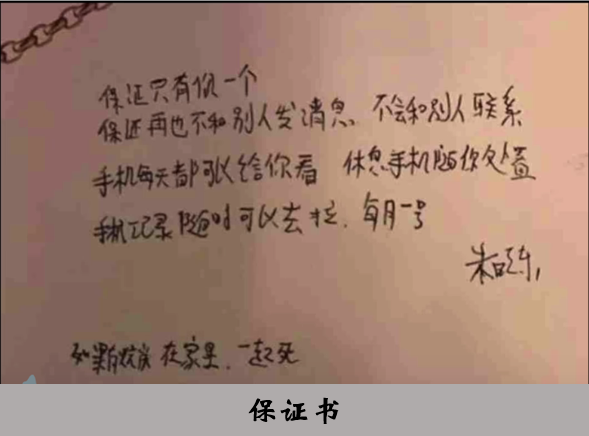 保证只有你一个
保证再也不和别人发消息 不会和别人联系
手机每天都可以给你看 休息手机随你处置
手机记录随时可以去拉. 每月一号
朱晓东
如果有 在家里. 一起死
保证书